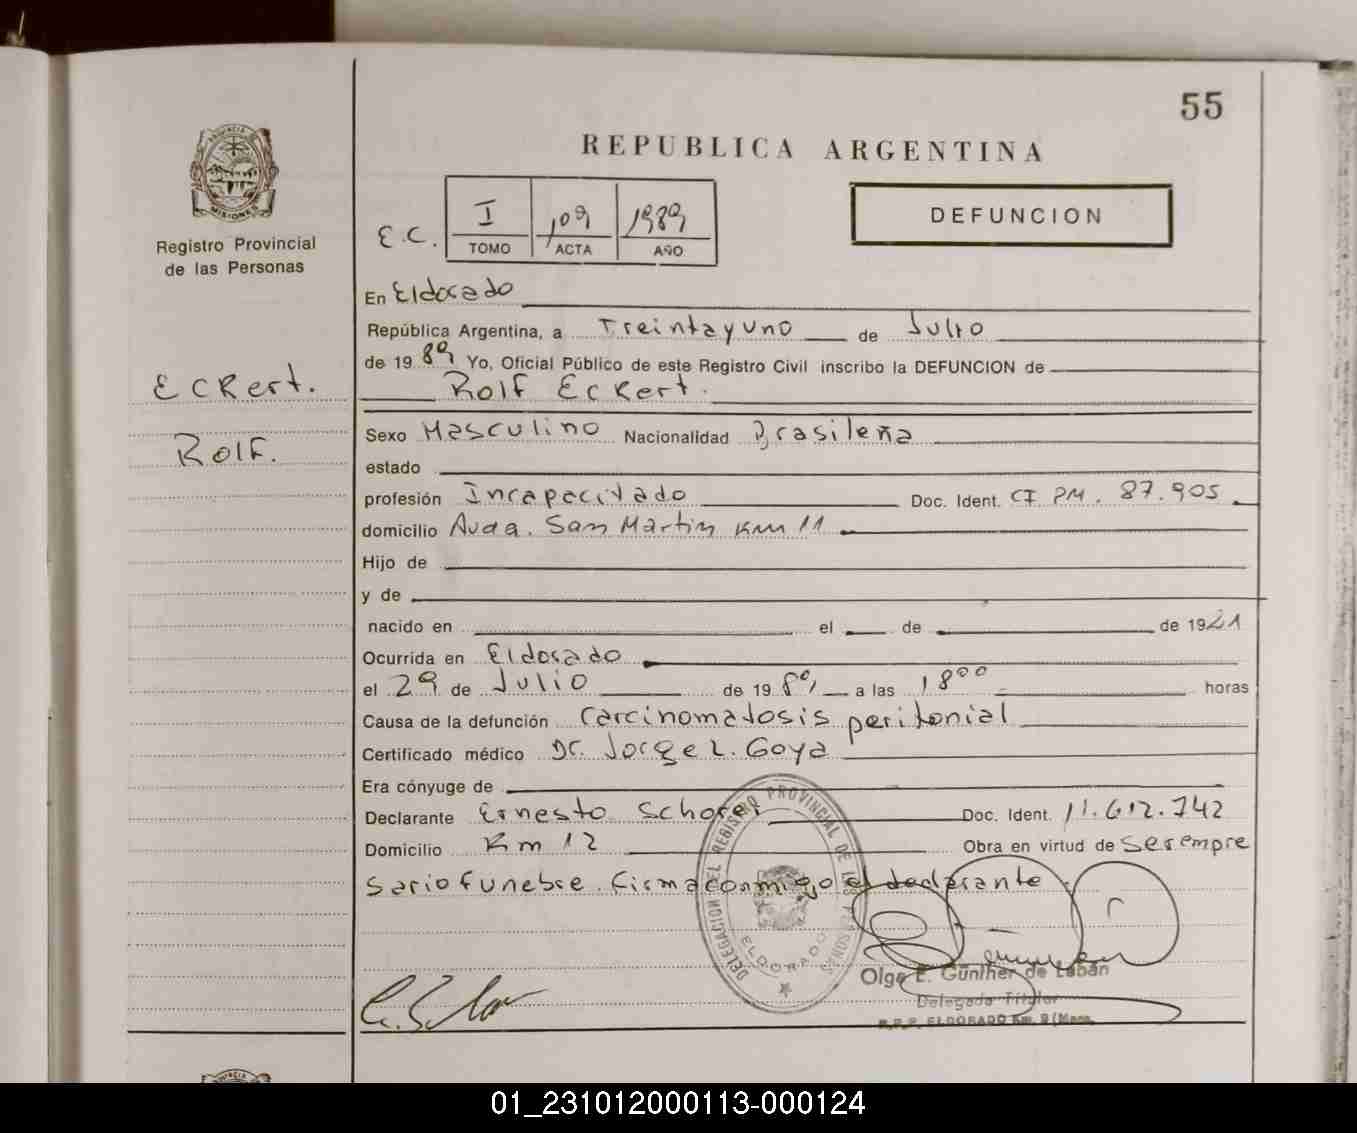 55
REPUBLICA ARGENTINA
PROVINCIA DE
MISIONES
Registro Provincial
de las Personas
DEFUNCION
E.C. I 109 1989
TOMO ACTA AÑO
En Eldorado
República Argentina, a Treintayuno de Julio
de 1989 Yo, Oficial Público de este Registro Civil inscribo la DEFUNCION de
Eckert. Rolf Eckert.
Rolf.
Sexo Masculino Nacionalidad Brasileña
estado
profesión Incapacitado Doc. Ident. CI PM. 87.905.
domicilio Avda. San Martin Km 11
Hijo de
y de
nacido en el de de 1921
Ocurrida en Eldorado
el 29 de Julio de 1989 a las 18 00 horas
Causa de la defunción Carcinomatosis peritonial
Certificado médico Dr. Jorge L. Goya
Era cónyuge de
Declarante Ernesto Schorer Doc. Ident. 11.612.742
Domicilio Km 12 Obra en virtud de Ser empre
sario funebre. Firma conmigo el declarante
DELEGACION DEL REGISTRO PROVINCIAL DE LAS PERSONAS
ELDORADO
Olga E. Günther de Labán
Delegada Titular
R.P.P. ELDORADO Km. 9 (Mnes.
01_231012000113-000124